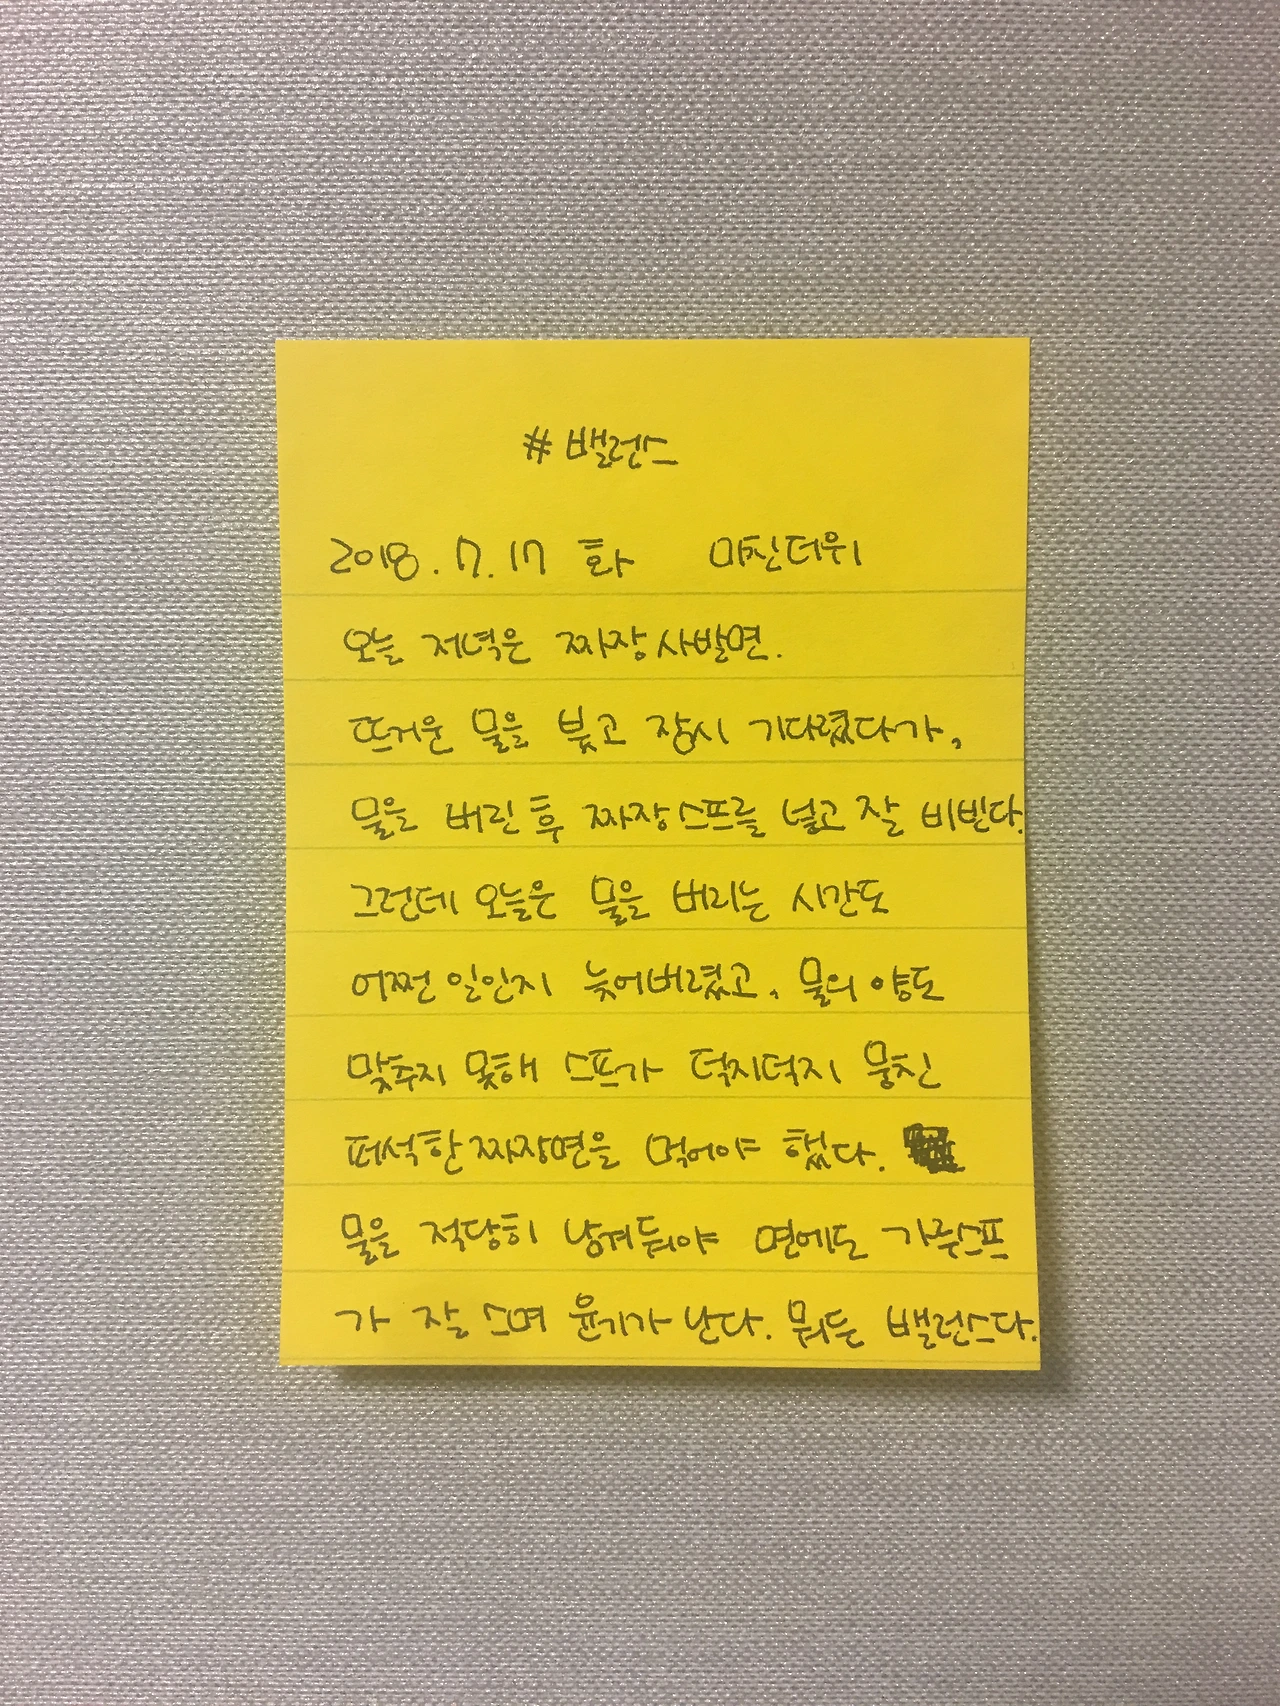 #밸런스
2018.7.17 화 미친더위
오늘 저녁은 짜장사발면.
뜨거운 물을 붓고 잠시 기다렸다가,
물을 버린 후 짜장스프를 넣고 잘 비빈다.
그런데 오늘은 물을 버리는 시간도
어쩐 일인지 늦어버렸고, 물의 양도
맞추지 못해 스프가 덕지덕지 뭉친
퍼석한 짜장면을 먹어야 했다.
물을 적당히 남겨둬야 면에도 가루스프
가 잘 스며 윤기가 난다. 뭐든 밸런스다.